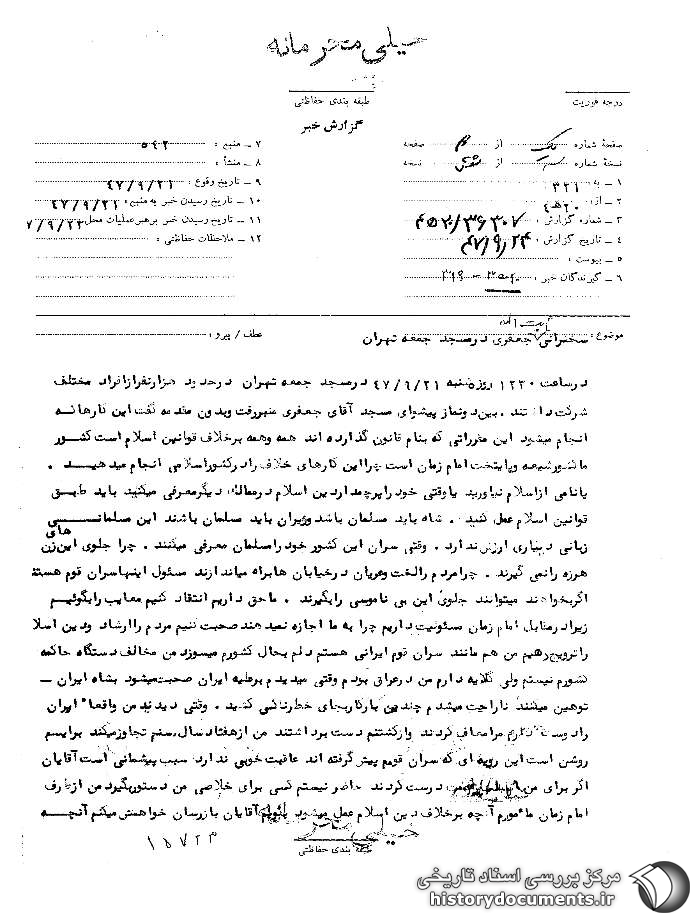 خیلی محرمانه
طبقه بندی حفاظتی
درجه فوریت
گزارش خبر
صفحهٔ شماره یک از صفحه
نسخهٔ شماره از نسخه
۱ ـ به ۳۲۱
۲ ـ از:
۳ ـ شماره گزارش:
۴ ـ تاریخ گزارش: ۴۷/۹/۲۴
۵ ـ پیوست:
۶ ـ گیرندگان خبر:
۷ ـ منبع: ۵۶۲
۸ ـ منشأ:
۹ ـ تاریخ وقوع: ۴۷/۹/۲۱
۱۰ ـ تاریخ رسیدن خبر به منبع: ۴۷/۹/۲۱
۱۱ ـ تاریخ رسیدن خبر برهبر عملیات محل
۱۲ ـ ملاحظات حفاظتی:
موضوع: سخنرانی آیت اله جعفری در مسجد جمعه تهران
عطف / پیرو:
در ساعت ۱۲۳۰ روز شنبه ۴۷/۹/۲۱ در مسجد جمعه تهران در حدود هزار نفر از افراد مختلف
شرکت داشتند . بین دو نماز پیشوای مسجد آقای جعفری منبر رفت و بدون مقدمه گفت این کارها که
انجام میشود این مقرراتی که بنام قانون گذارده اند همه و همه بر خلاف قوانین اسلام است کشور
ما کشور شیعه و پایتخت امام زمان است چرا این کارهای خلاف را در کشور اسلامی انجام میدهید .
یا نامی از اسلام نیاورید یا وقتی خود را پرچمدار دین اسلام در ممالک دیگر معرفی میکنید باید طبق
قوانین اسلام عمل کنید . شاه باید مسلمان باشد وزیران باید مسلمان باشند این مسلمانی های
زبانی دیناری ارزش ندارد . وقتی سران این کشور خود را مسلمان معرفی میکنند . چرا جلوی این زن
هرزه را نمی گیرند . چرا مردم را لخت و عریان در خیابان ها براه میاندازند مسئول اینها سران قوم هستند
اگر بخواهند میتوانند جلوی این بی ناموسی را بگیرند . ما حق داریم انتقاد کنیم معایب را بگوئیم
زیرا در مقابل امام زمان مسئولیت داریم چرا به ما اجازه نمیدهند صحبت کنیم مردم را ارشاد و دین اسلا
را ترویج دهیم من هم مانند سران قوم ایرانی هستم دلم بحال کشورم میسوزد من مخالف دستگاه حاکمه
کشورم نیستم ولی گلایه دارم من در عراق بودم وقتی میدیدم بر علیه ایران صحبت میشود بشاه ایران ـ
توهین میکنند ناراحت میشدم چندین بار کار بجای خطرناکی کشید . وقتی دیدند من واقعاً ایران
را دوست دارم مرا معاف کردند و از کشتنم دست برداشتند من از هفتاد سال سنم تجاوز میکند برایم
روشن است این رویه ای که سران قومم پیش گرفته اند عاقبت خوبی ندارد سبب پیشمانی است آقایان
اگر برای من درست کردند حاضر نیستم کسی برای خلاصی من دستور بگیرد من از طرف
امام زمان مأمورم آنچه بر خلاف دین اسلام عمل میشود بگویم آقایان بازرسان خواهش میکنم آنچه
خیلی محرمانه
طبقه بندی حفاظتی
۱۵۷۲۳
مرکز بررسی اسناد تاریخی
historydocuments.ir